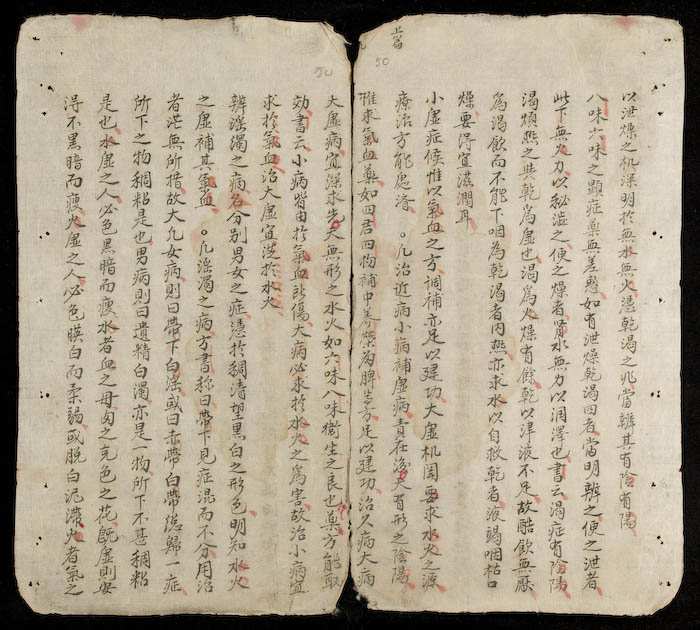 上篇
50
以泄燥之机深明於無水無火憑乾渴之兆當辨其有陰有陽
八味六味之顕症藥無差悮如有泄燥乾渴四者當明辨之便之泄者
此下無火力以秘澁之便之燥者腎水無力以润澤也書云渴症有陰陽
渴煩热之其乾為虚也渴為火燥有餘乾以津液不足故酷飲無厭
為渴飲而不能下咽為乾渴者内热亦求水以自救乾者液竭咽枯口
燥要得宜滋潤耳
小虚症候惟以氣血之方調補亦足以建功大虚机関要求水火之源
療治方能慿洧 ○凡治近病小病補虚病責在後天有形之陰陽
惟求氣血藥如四君四物補中养榮帰脾等方足以建功治久病大病
50
大虚病宜深求先天無形之水火如六味八味衛生之良也藥方能取
効書云小病皆由於氣血所傷大病必求於水火之為害故治小病宜
求於氣血治大虚宜洗於水火
辨淫濁之病名分别男女之症憑於稠清望黑白之形色明知水火
之虚補其氣血 ○凡淫濁之病方書称曰帶下見症混而不分用治
者茫無所措故大凢女病則曰帶下白淫或曰赤帶白帶總歸一症
所下之物稠粘是也男病則曰遺精白濁亦是一物所下不甚稠粘
是也水虚之人必色黑暗而瘦水者血之母匈之充色之花既虚則安
得不黑暗而瘦火虚之人必色㿠白而柔弱或脱白泥滯火者氣之